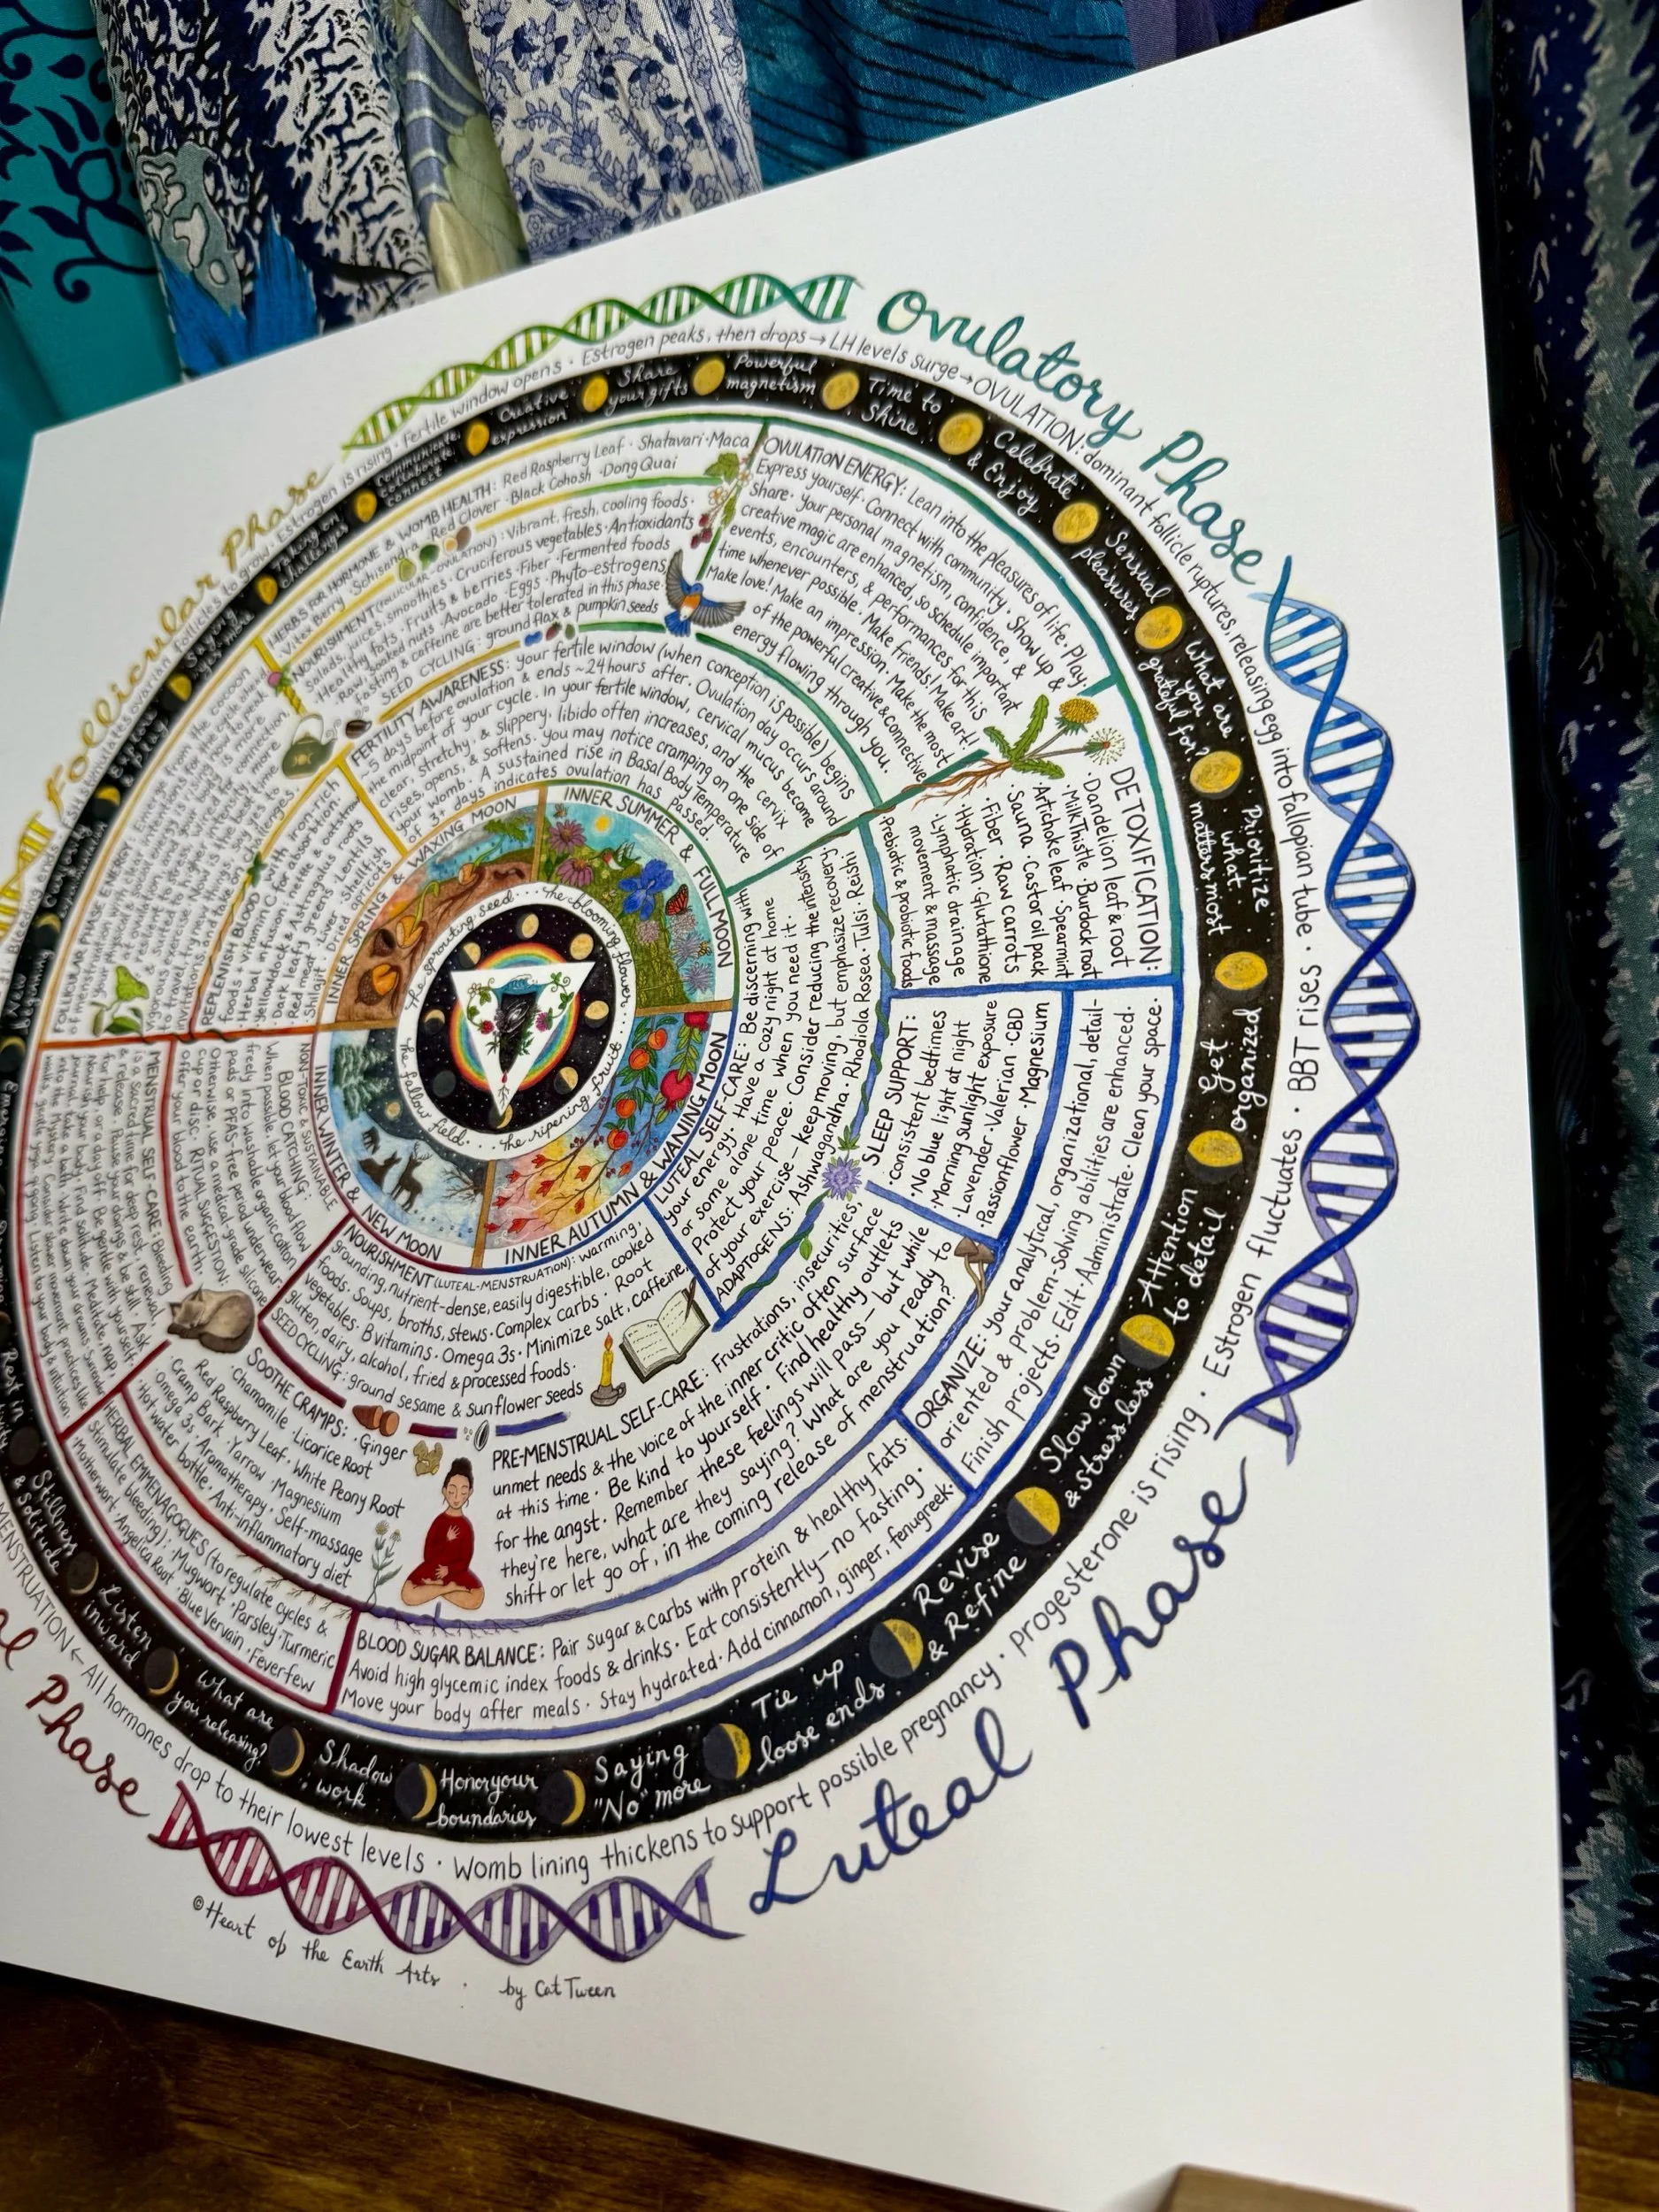 Follicular Phase
Ovulatory Phase
Luteal Phase
Phase
Estrogen is rising · Fertile window opens · Estrogen peaks, then drops → LH levels surge → OVULATION: dominant follicle ruptures, releasing egg into fallopian tube · BBT rises · Estrogen fluctuates · progesterone is rising · Womb lining thickens to support possible pregnancy ·
MENSTRUATION ← All hormones drop to their lowest levels
Communicate,
collaborate,
connect
Creative
expression
Share
your gifts
Powerful
magnetism
Time to
Shine
Celebrate
& Enjoy
Sensual
pleasures
What are
you
grateful for?
Prioritize
what
matters most
Get
organized
Attention
to detail
Slow down
& stress less
Revise
& Refine
Tie up
loose ends
Saying
"No" more
Honor your
boundaries
Shadow
work
What are
you releasing?
Listen
inward
Stillness
& Solitude
Rest in
HERBS FOR HORMONE & WOMB HEALTH: Red Raspberry Leaf · Shatavari · Maca
· Vitex Berry · Schisandra · Red Clover · Black Cohosh · Dong Quai
NOURISHMENT (FOLLICULAR-OVULATION): Vibrant, fresh, cooling foods ·
Salads, juices, smoothies · Cruciferous vegetables · Antioxidants
Healthy fats · Fruits & berries · Fiber · Fermented foods
Raw, soaked nuts · Avocado · Eggs · Phyto-estrogens
Fasting & caffeine are better tolerated in this phase ·
SEED CYCLING: ground flax & pumpkin seeds
FERTILITY AWARENESS: your fertile window (when conception is possible) begins
~5 days before ovulation & ends ~24 hours after. Ovulation day occurs around
the midpoint of your cycle. In your fertile window, cervical mucus become
clear, stretchy, & slippery, libido often increases, and the cervix
rises, opens, & softens. you may notice cramping on one side of
your womb. A sustained rise in Basal Body Temperature
of 3+ days indicates ovulation has passed.
OVULATION ENERGY: Lean into the pleasures of life. Play.
Express yourself · Connect with community · Show up &
Share · Your personal magnetism, confidence, &
creative magic are enhanced, so schedule important
events, encounters, & performances for this
time whenever possible · Make friends! Make art!
Make love! Make an impression · Make the most
of the powerful creative & connective
energy flowing through you.
DETOXIFICATION:
· Dandelion leaf & root
· Milk Thistle · Burdock root
· Artichoke leaf · Spearmint
· Sauna · Castor oil pack
· Fiber · Raw carrots
· Hydration · Glutathione
· Lymphatic drainage
movement & massage
· Prebiotic & probiotic foods
SLEEP SUPPORT:
· consistent bedtimes
· No blue light at night
· Morning sunlight exposure
· Lavender · Valerian · CBD
· Passionflower · Magnesium
ORGANIZE: your analytical, organizational, detail-
oriented & problem-solving abilities are enhanced.
Finish projects · Edit · Administrate · Clean your space.
LUTEAL SELF-CARE: Be discerning with
your energy · Have a cozy night at home
or some alone time when you need it ·
Protect your peace · Consider reducing the intensity
of your exercise — keep moving, but emphasize recovery.
ADAPTOGENS: Ashwagandha · Rhodiola Rosea · Tulsi · Reishi
PRE-MENSTRUAL SELF-CARE: Frustrations, insecurities,
unmet needs & the voice of the inner critic often surface
at this time · Be kind to yourself · Find healthy outlets
for the angst · Remember these feelings will pass — but while
they're here, what are they saying? What are you ready to
shift or let go of, in the coming release of menstruation?
BLOOD SUGAR BALANCE: Pair sugar & carbs with protein & healthy fats ·
Avoid high glycemic index foods & drinks · Eat consistently — no fasting ·
Move your body after meals · Stay hydrated · Add cinnamon, ginger, fenugreek ·
NOURISHMENT (LUTEAL-MENSTRUATION): warming,
grounding, nutrient-dense, easily digestible, cooked
foods · Soups, broths, stews · Complex carbs · Root
vegetables · B vitamins · Omega 3s · Minimize salt, caffeine,
gluten, dairy, alcohol, fried & processed foods ·
SEED CYCLING: ground sesame & sunflower seeds
SOOTHE CRAMPS: · Ginger
· Chamomile · Licorice Root
Red Raspberry Leaf, White Peony Root
Cramp Bark · Yarrow · Magnesium
· Omega 3s · Aromatherapy · Self-massage
· Hot water bottle · Anti-inflammatory diet
HERBAL EMMENAGOGUES (to regulate cycles &
stimulate bleeding): Mugwort · Parsley · Turmeric
· Motherwort · Angelica Root · Blue Vervain · Feverfew
MENSTRUAL SELF-CARE: Bleeding
is a sacred time for deep rest, renewal,
& release. Pause your doings & be still. Ask
for help, or a day off. Be gentle with yourself.
Nourish your body. Find solitude. Meditate, nap
journal, take a bath. Write down your dreams. Surrender
into the mystery. Consider slower movement practices like
walks, gentle yoga, qigong. Listen to your body & intuition.
NON-TOXIC & SUSTAINABLE
BLOOD CATCHING:
When possible, let your blood flow
freely into washable organic cotton
pads or PFAS-free period underwear.
Otherwise, use a medical-grade silicone
cup or disc. RITUAL SUGGESTION:
offer your blood to the earth.
REPLENISH BLOOD with iron-rich
foods + vitamin C for absorption:
· Herbal infusion of nettle & oatstraw
· Yellowdock & Astragalus roots
· Dark leafy greens · Lentils
· Red meat · Liver · Shellfish
· Shilajit · Dried apricots
FOLLICULAR PHASE ENERGY:
INNER SPRING & WAXING MOON
INNER SUMMER & FULL MOON
INNER AUTUMN & WANING MOON
INNER WINTER & NEW MOON
The sprouting seed . . .
The blooming flower . . .
The ripening fruit . . .
The fallow field . . .
© Heart of the Earth Arts · by Cat Tween